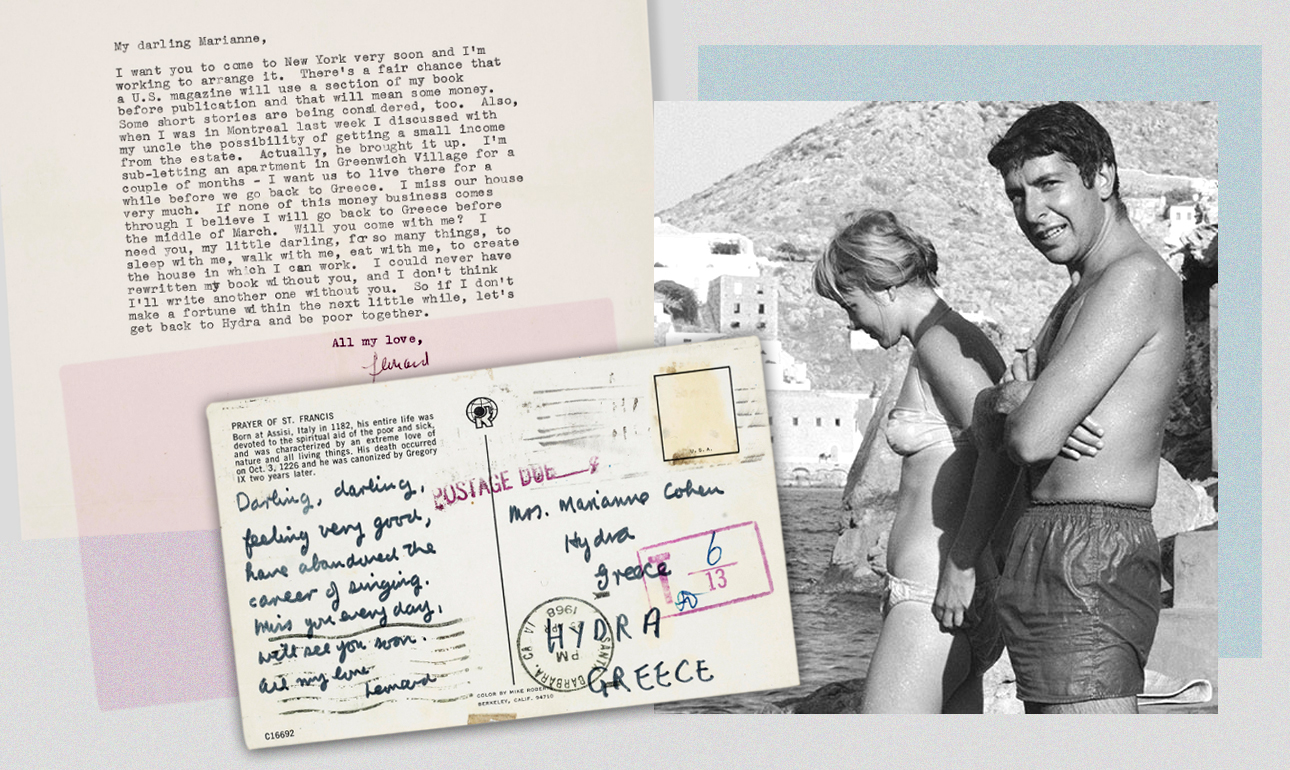 My darling Marianne,
I want you to come to New York very soon and I'm
working to arrange it. There's a fair chance that
a U.S. magazine will use a section of my book
before publication and that will mean some money.
Some short stories are being considered, too. Also,
when I was in Montreal last week I discussed with
my uncle the possibility of getting a small income
from the estate. Actually, he brought it up. I'm
sub-letting an apartment in Greenwich Village for a
couple of months - I want us to live there for a
while before we go back to Greece. I miss our house
very much. If none of this money business comes
through I believe I will go back to Greece before
the middle of March. Will you come with me? I
need you, my little darling, for so many things, to
sleep with me, walk with me, eat with me, to create
the house in which I can work. I could never have
rewritten my book without you, and I don't think
I'll write another one without you. So if I don't
make a fortune within the next little while, let's
get back to Hydra and be poor together.
All my love,
Lenard
PRAYER OF ST. FRANCIS
Born at Assisi, Italy in 1182, his entire life was
devoted to the spiritual aid of the poor and sick,
and was characterized by an extreme love of
nature and all living things. His death occurred
on Oct. 3, 1226 and he was canonized by Gregory
IX two years later.
Darling, darling,
feeling very good,
have abandoned the
career of singing.
Miss you every day,
will see you soon.
All my love
Lenard
C16692
POSTAGE DUE
U.S.A.
Mrs. Marianne Cohen
Hydra
Greece
T 6
13
HYDRA
GREECE
SANTA BARBARA, CA.
PM
1968
COLOR BY MIKE ROBERTS
BERKELEY, CALIF. 94710